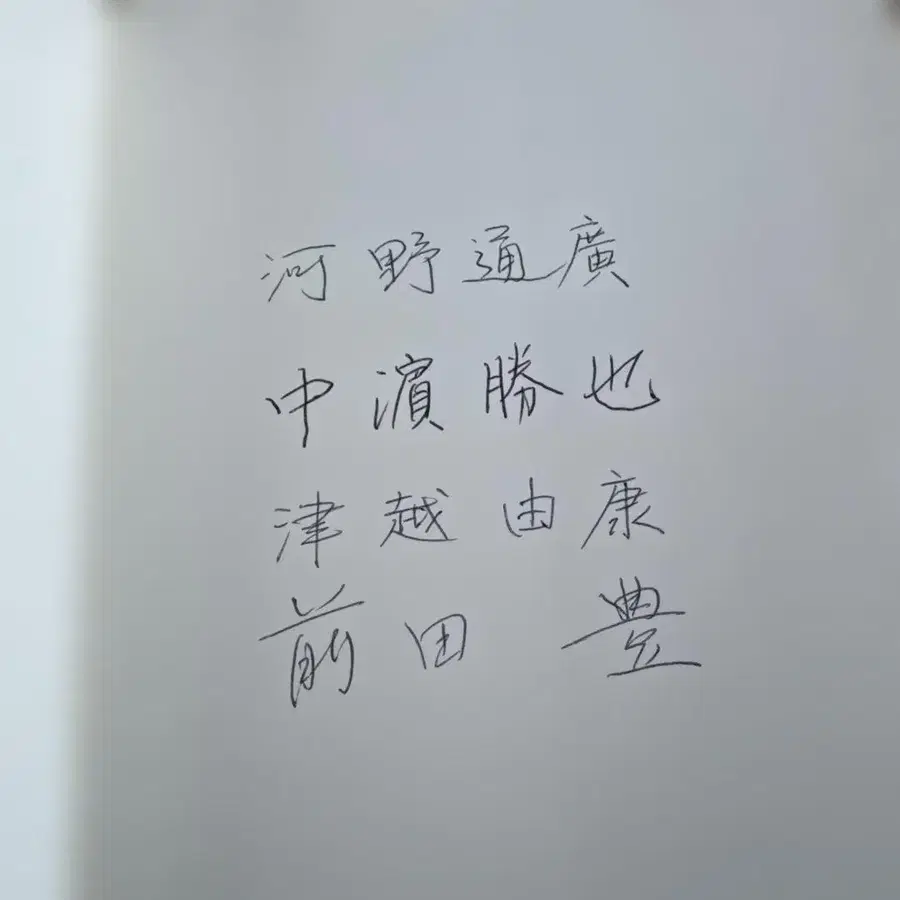 河野通廣
中濵勝也
津越由康
前田 豊